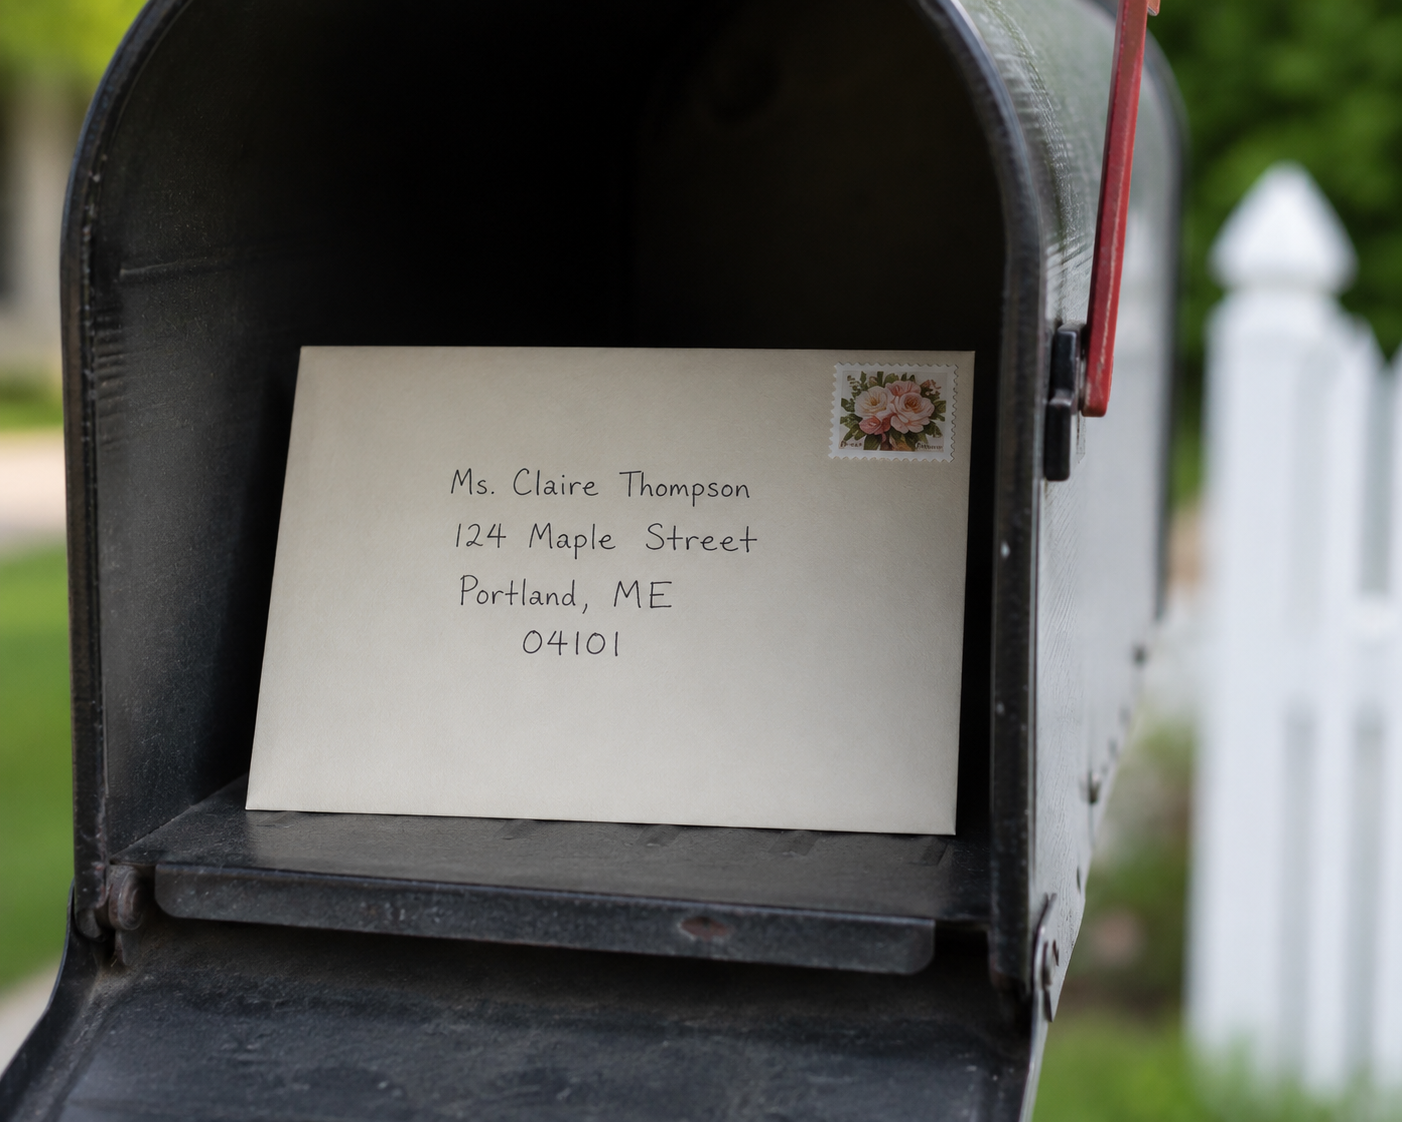 Ms. Claire Thompson
124 Maple Street
Portland, ME
04101